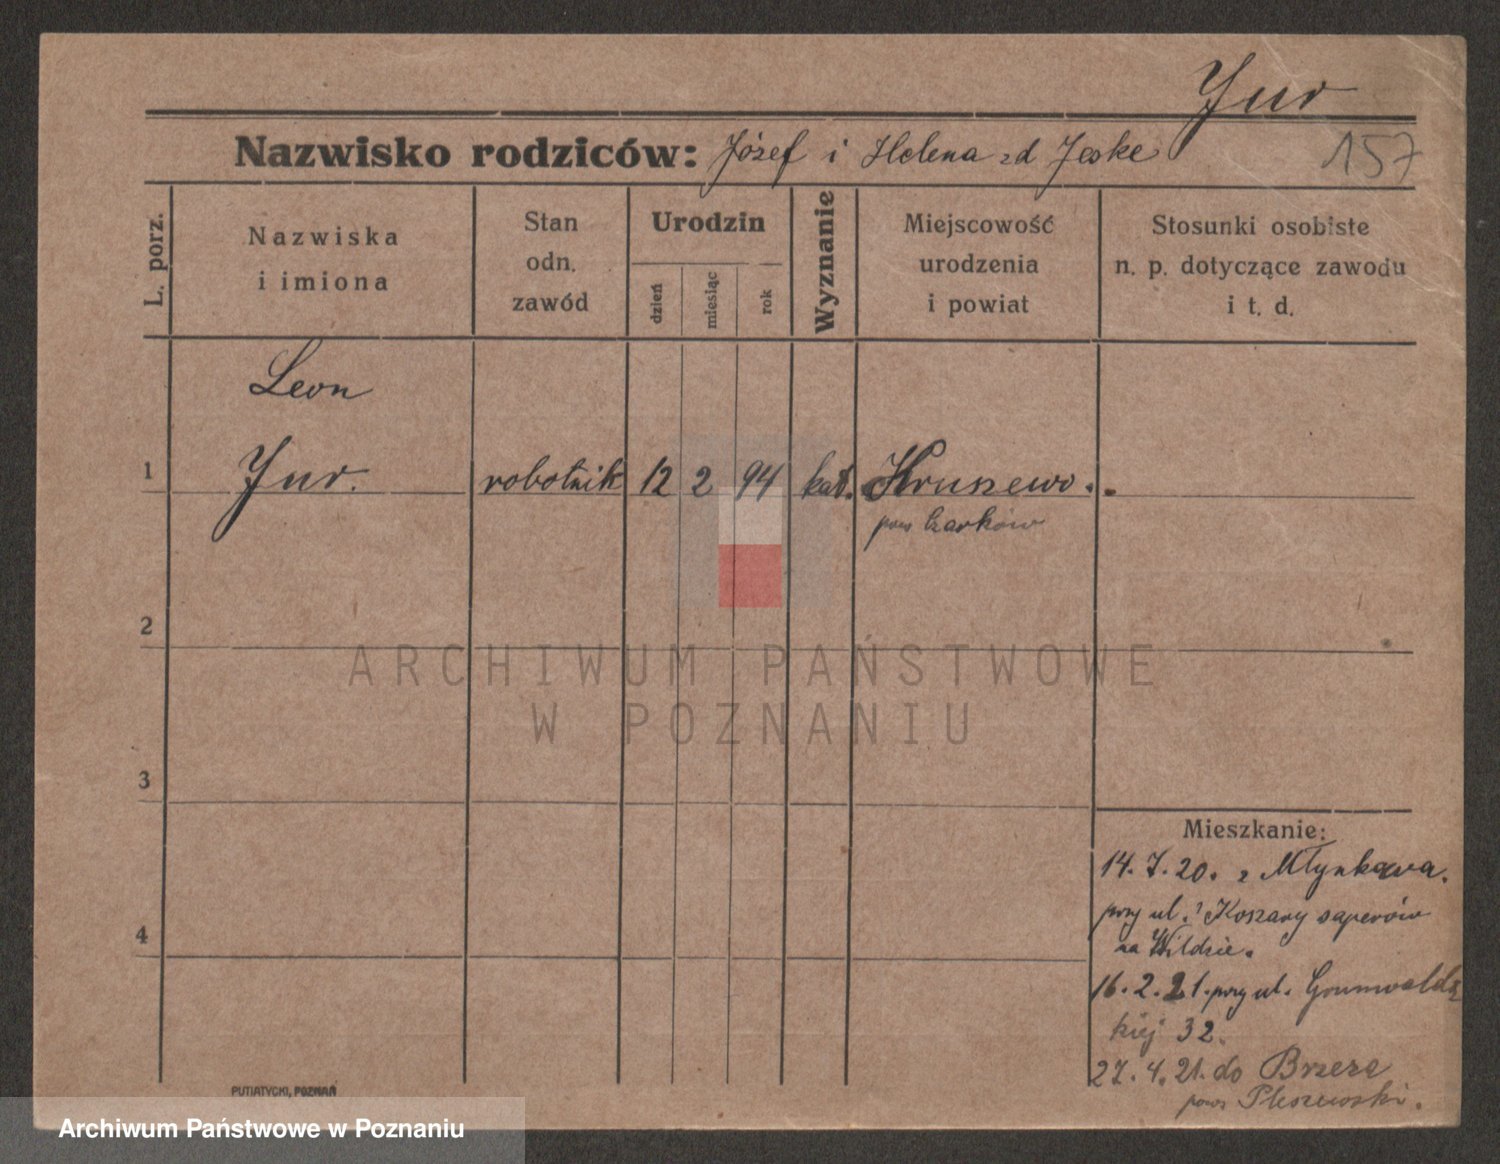 Jur
157
Nazwisko rodziców: Józef i Helena zd Jeske
L. porz.
Nazwiska
i imiona
Stan
odn.
zawód
Urodzin
dzień
miesiąc
rok
Wyznanie
Miejscowość
urodzenia
i powiat
Stosunki osobiste
n. p. dotyczące zawodu
i t. d.
Leon
1 Jur. robotnik 12 2 94 kat. Hruszewo.
pow Czarków
2
ARCHIWUM PAŃSTWOWE
W POZNANIU
3
Mieszkanie:
14.7.20. z Młynkowa.
przy ul. Koszary saperów
na Wildzie.
4
16.2.21. przy ul. Grunwaldz
kiej 32.
27.4.21. do Brzezc
pow Pleszewski.
PUTIATYCKI, POZNAŃ
Archiwum Państwowe w Poznaniu